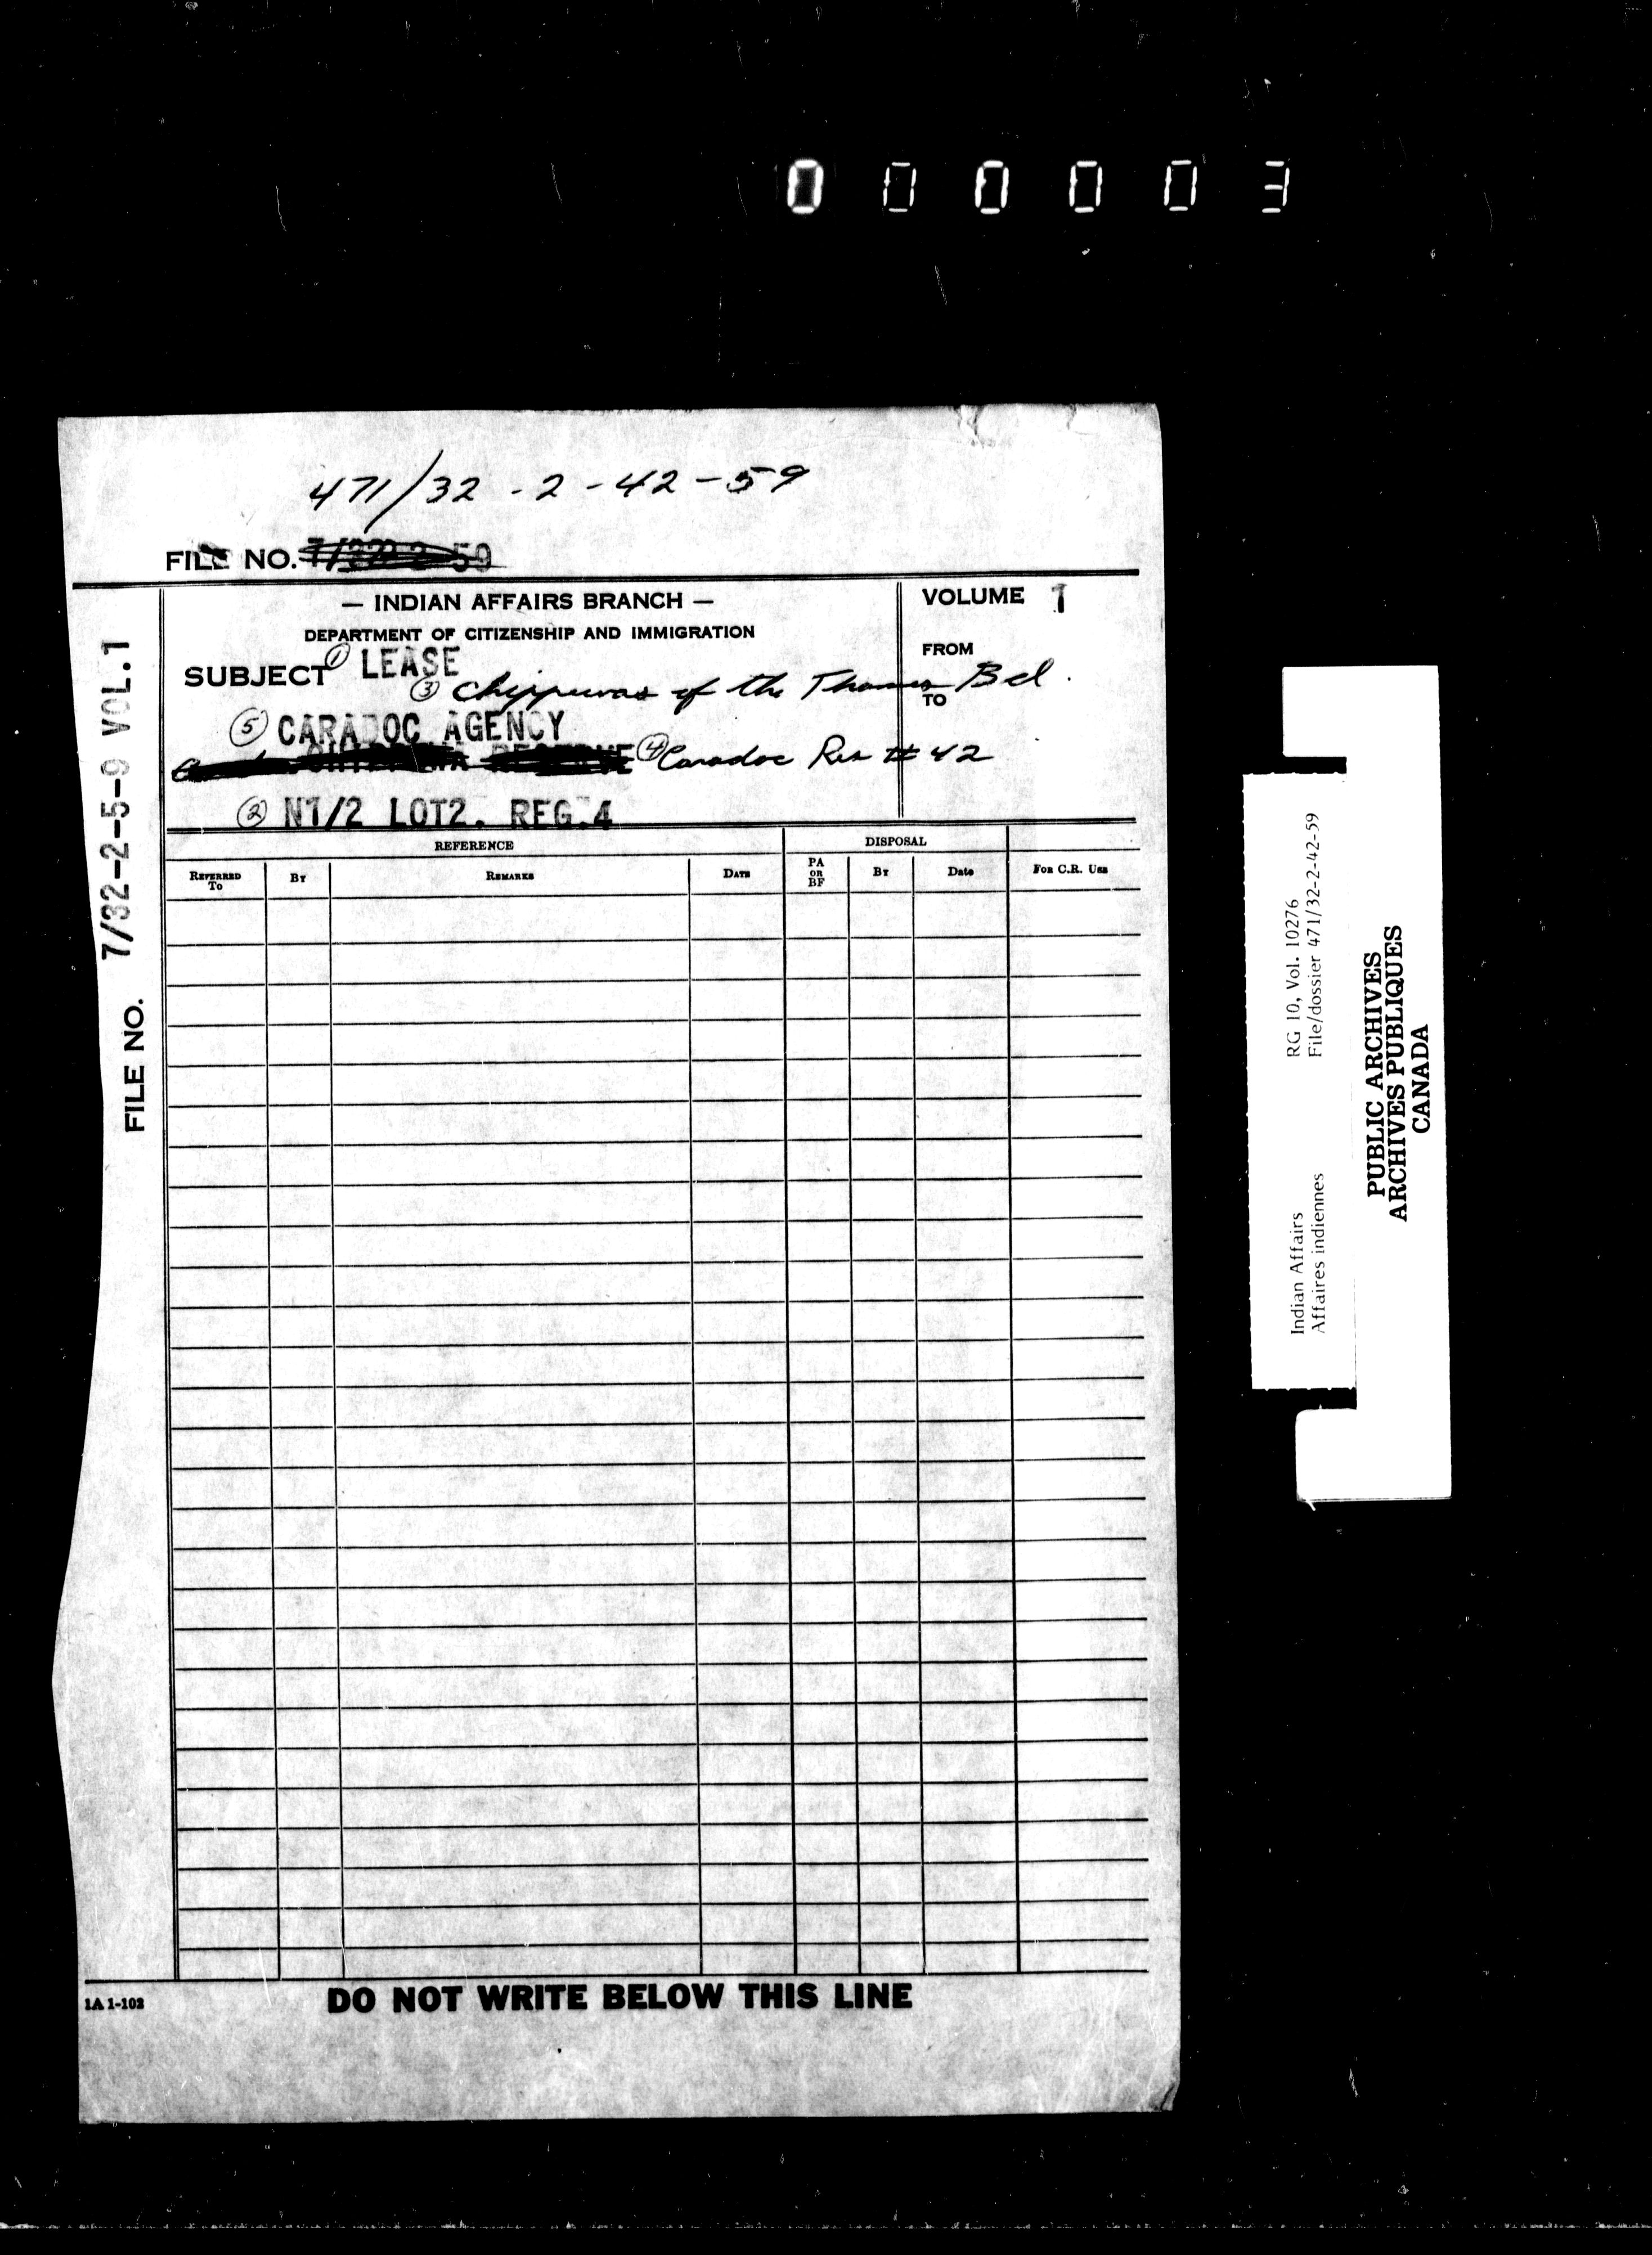 000003
471/32-2-42-59
FILE NO.
— INDIAN AFFAIRS BRANCH —
DEPARTMENT OF CITIZENSHIP AND IMMIGRATION
VOLUME 1
FROM
TO
SUBJECT ① LEASE
③ Chippewas of the Thames
⑤ CARADOC AGENCY
④ Caradoc Res # 42
② N1/2 LOT2. REG.4
FILE NO. 7/32-2-5-9 VOL.1
REFERENCE
DISPOSAL
REFERRED TO
BY
REMARKS
DATE
PA OR BF
BY
Date
FOR C.R. USE
1A 1-102
DO NOT WRITE BELOW THIS LINE
Indian Affairs RG 10, Vol. 10276
Affaires indiennes File/dossier 471/32-2-42-59
PUBLIC ARCHIVES
ARCHIVES PUBLIQUES
CANADA